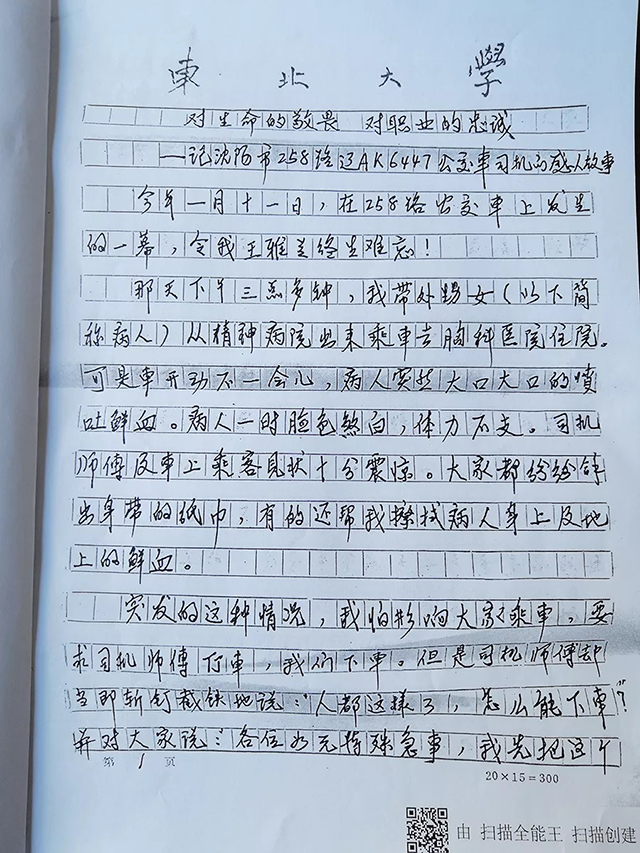 東北大學
对生命的敬畏 对职业的忠诚
——记沈阳市258路辽AK6447公交車司机的感人故事
今年一月十一日，在258路公交車上发生
的一幕，令我王雅兰终生难忘！
那天下午三点多钟，我带外甥女（以下简
称病人）从精神病院出来乘車去胸科医院住院。
可是車开动不一会儿，病人突然大口大口的噴
吐鲜血。病人一时脸色煞白，体力不支。司机
师傅及車上乘客见状十分震惊。大家都纷纷拿
出身带的纸巾，有的还帮我擦拭病人身上及地
上的鲜血。
突发的这种情况，我怕影响大家乘車，要
求司机师傅停車，我们下車。但是司机师傅却
当即斩钉截铁地说：“人都这樣了，怎么能下車？”
并对大家说：“各位如无特殊急事，我先把这个
第1页
20×15=300
由 扫描全能王 扫描创建